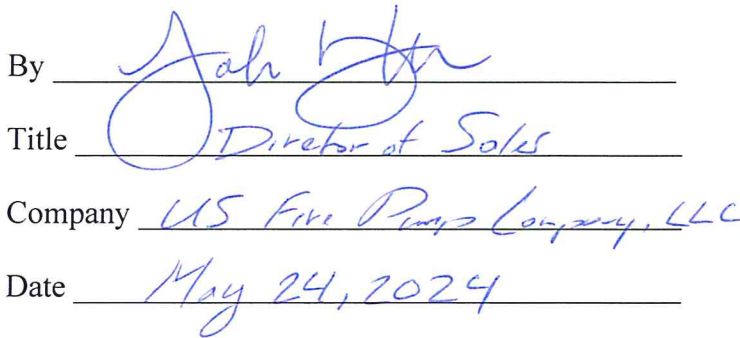 By John
Title Director of Sales
Company US Fire Pump Company, LLC
Date May 24, 2024